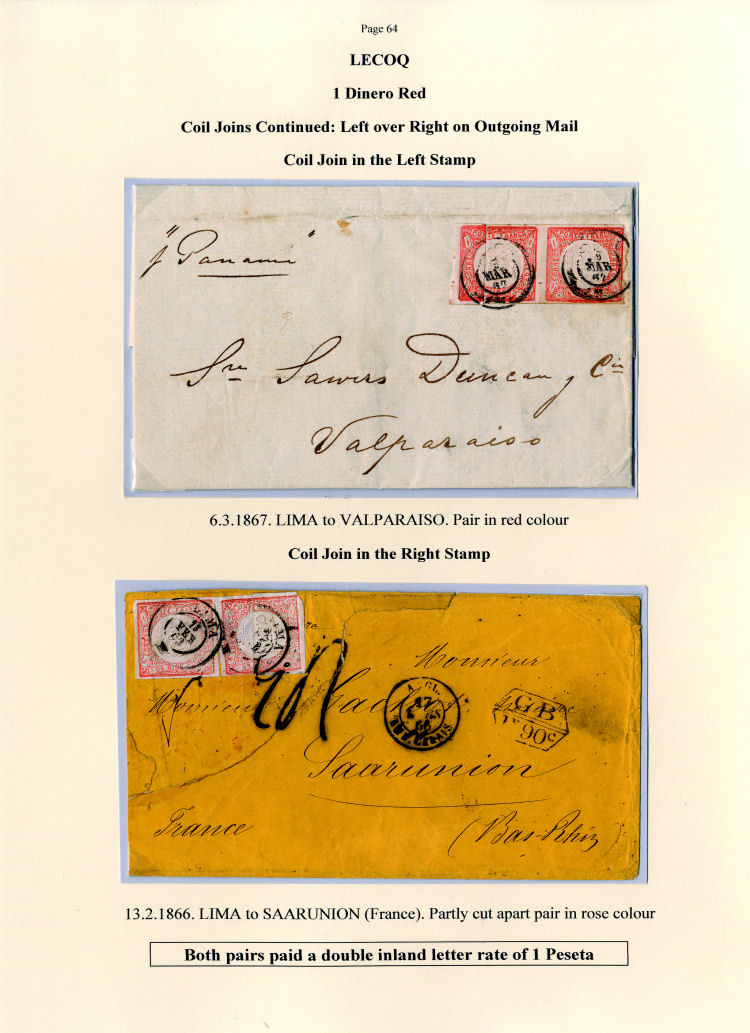 Page 64
LECOQ
1 Dinero Red
Coil Joins Continued: Left over Right on Outgoing Mail
Coil Join in the Left Stamp
"p Panama"
MAR
67
MAR
67
Sres Sawers Duncan y Cia
Valparaiso
6.3.1867. LIMA to VALPARAISO. Pair in red colour
Coil Join in the Right Stamp
LIMA
13
FEB
LIMA
Monsieur
Monsieur
A. GL.
17
CALAIS
GB
1F 90c
Saarunion
France
(Bas-Rhin)
13.2.1866. LIMA to SAARUNION (France). Partly cut apart pair in rose colour
Both pairs paid a double inland letter rate of 1 Peseta